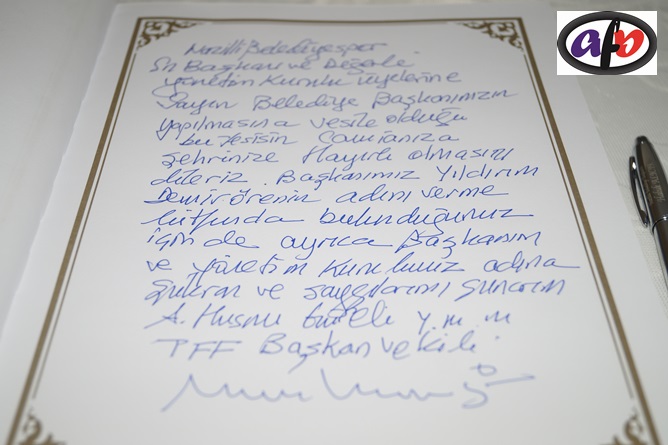 Nazilli Belediyespor
Sn Başkanı ve Değerli
yönetim Kurulu üyelerine
Sayın Belediye Başkanımızın
yapılmasına vesile olduğu
bu Tesisin Camianıza
şehrinize Hayırlı olmasını
dileriz. Başkanımız Yıldırım
Demirörenin adını verme
lütfunda bulunduğunuz
için de ayrıca Başkanım
ve yönetim Kurulumuz adına
Şükran ve saygılarımı sunarım
A. Hüsnü Güreli y.m.m
TFF Başkan vekili.
afp